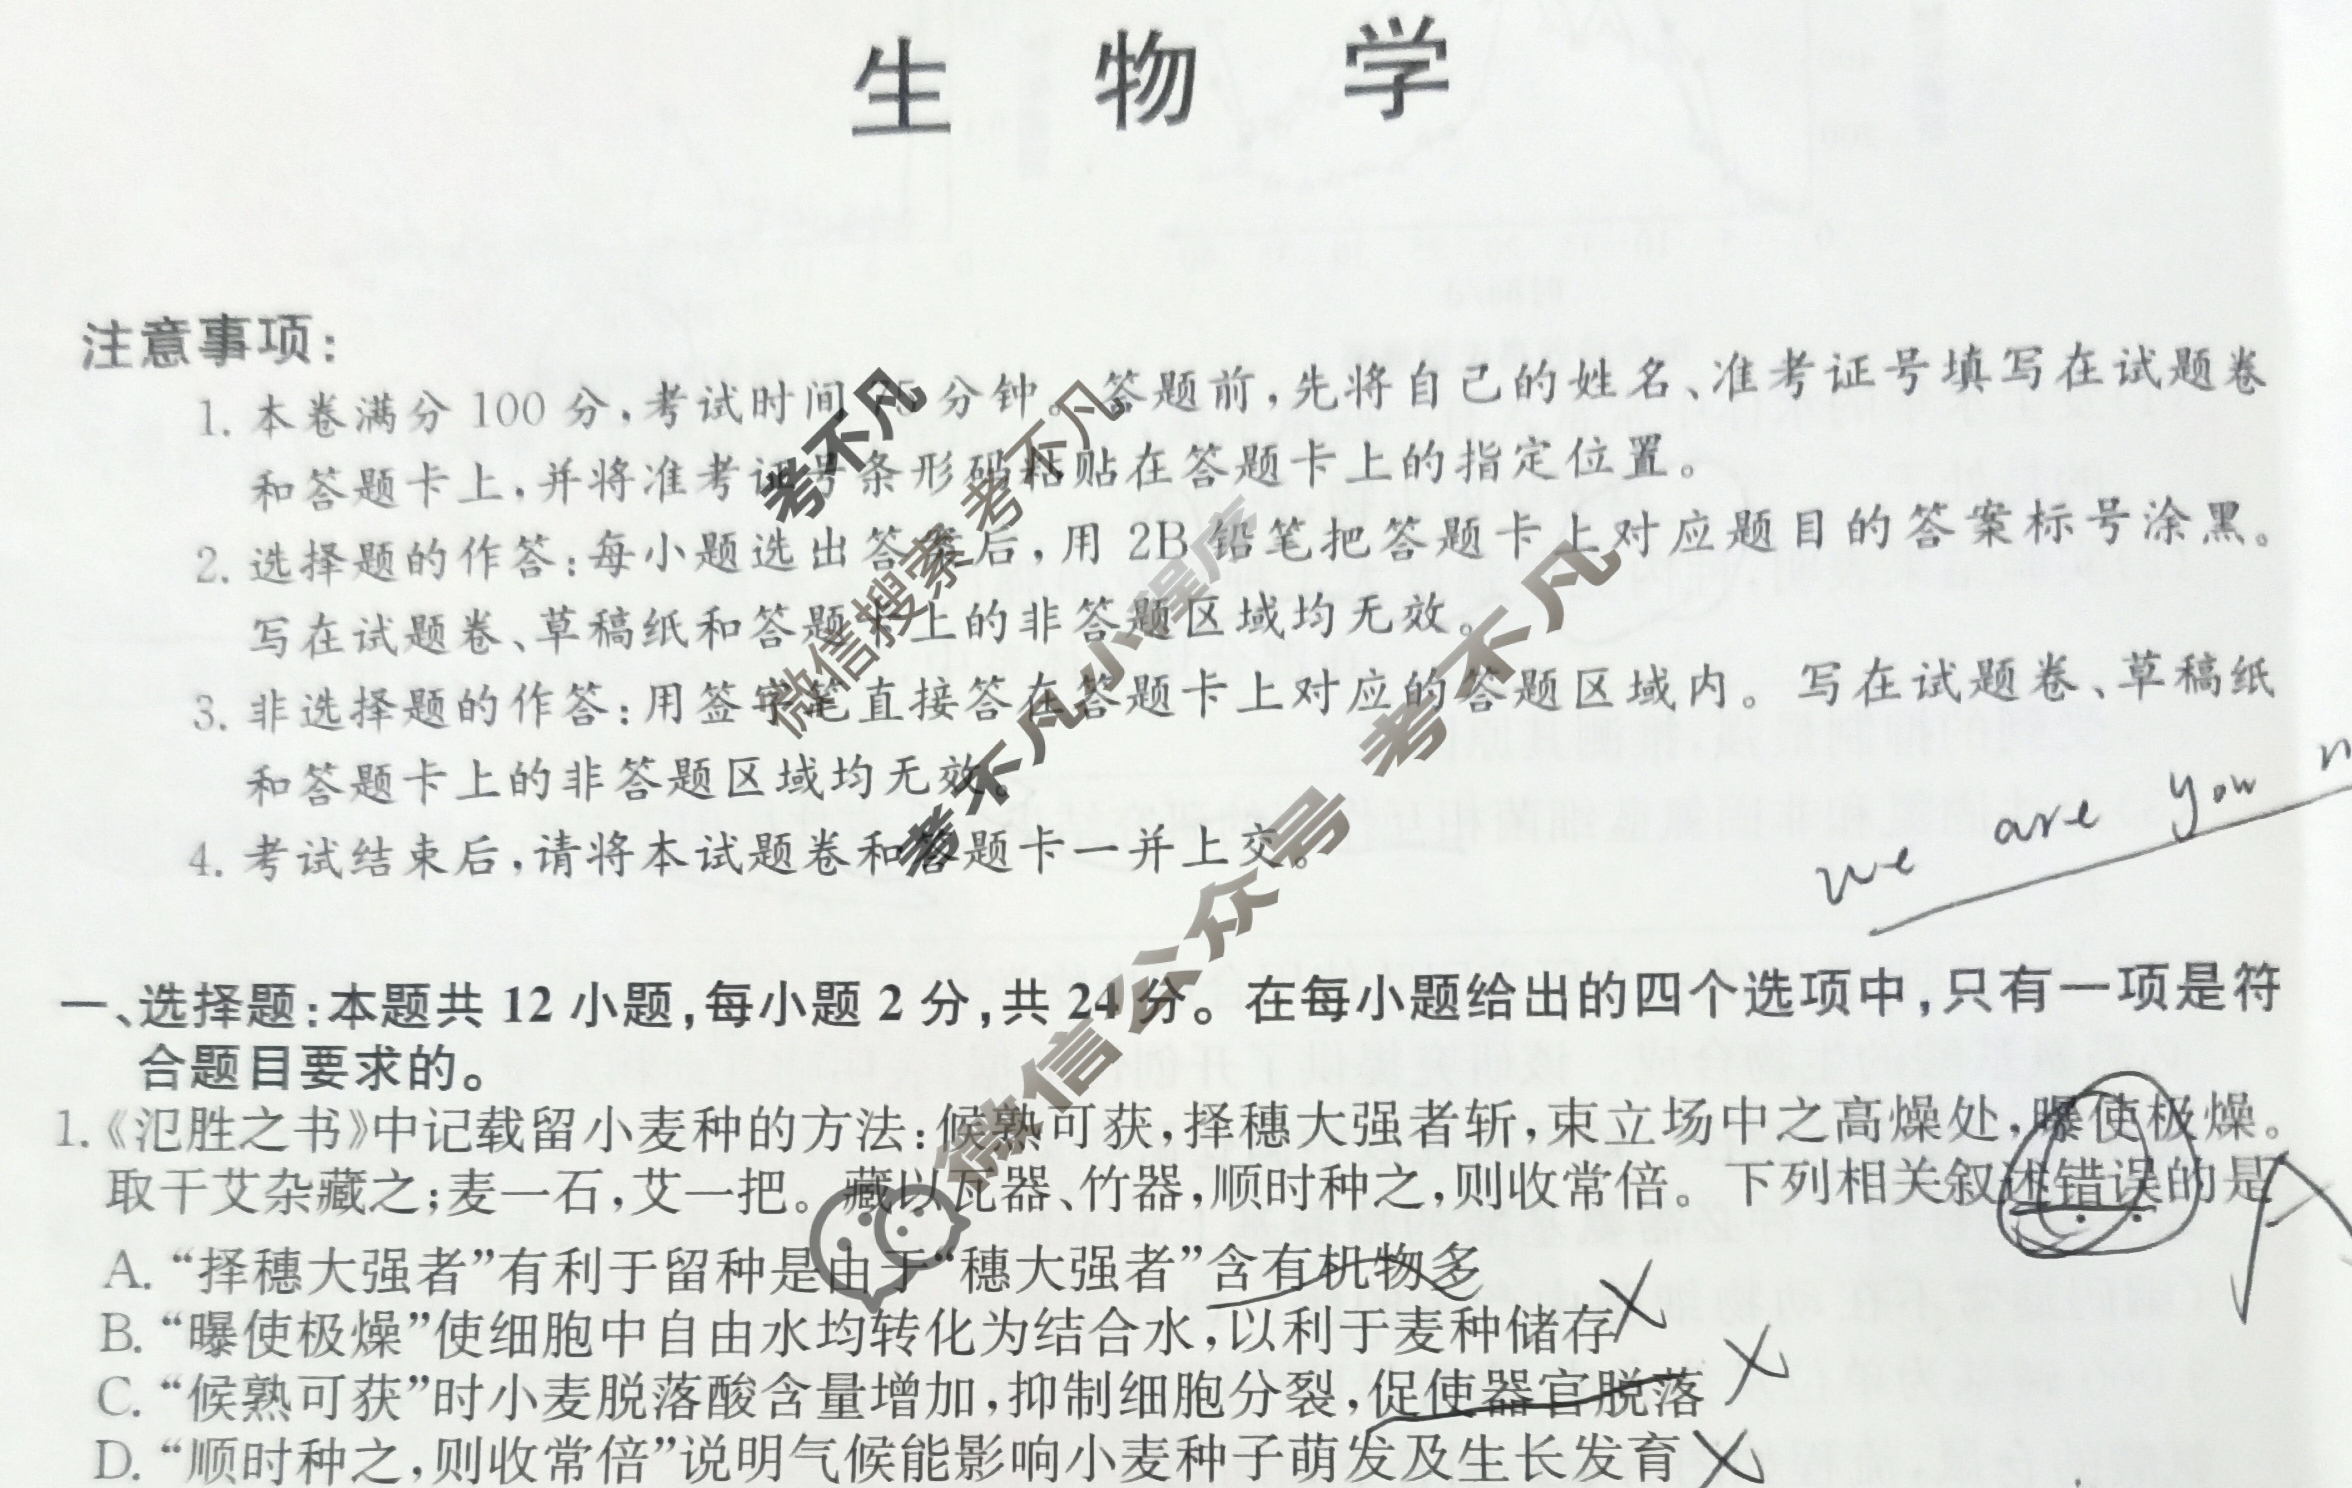 生 物 学
注意事项：
1. 本卷满分 100 分，考试时间 75 分钟。答题前，先将自己的姓名、准考证号填写在试题卷
和答题卡上，并将准考证号条形码粘贴在答题卡上的指定位置。
2. 选择题的作答：每小题选出答案后，用 2B 铅笔把答题卡上对应题目的答案标号涂黑。
写在试题卷、草稿纸和答题卡上的非答题区域均无效。
3. 非选择题的作答：用签字笔直接答在答题卡上对应的答题区域内。写在试题卷、草稿纸
和答题卡上的非答题区域均无效。
4. 考试结束后，请将本试题卷和答题卡一并上交。
we are you
一、选择题：本题共 12 小题，每小题 2 分，共 24 分。在每小题给出的四个选项中，只有一项是符
合题目要求的。
1.《氾胜之书》中记载留小麦种的方法：候熟可获，择穗大强者斩，束立场中之高燥处，曝使极燥。
取干艾杂藏之；麦一石，艾一把。藏以瓦器、竹器，顺时种之，则收常倍。下列相关叙述错误的是
A. “择穗大强者”有利于留种是由于“穗大强者”含有机物多
B. “曝使极燥”使细胞中自由水均转化为结合水，以利于麦种储存
C. “候熟可获”时小麦脱落酸含量增加，抑制细胞分裂，促使器官脱落
D. “顺时种之，则收常倍”说明气候能影响小麦种子萌发及生长发育
考不凡
微信搜索 考不凡
考不凡小程序
微信公众号 考不凡